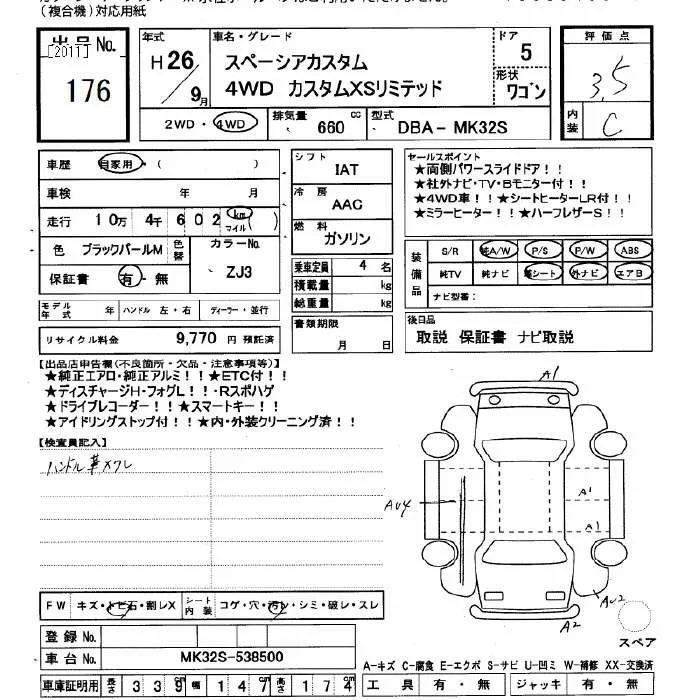 (複合機)対応用紙
出品No.
[2011]
176
年式
H26/9月
車名・グレード
スペーシアカスタム
4WD カスタムXSリミテッド
ドア
5
形状
ワゴン
評価点
3.5
内装
C
2WD・4WD
排気量
660 cc
型式
DBA-MK32S
車歴 自家用・( )
車検 年 月
走行 10万 4千 602 km マイル( )
色 ブラックパールM 色替
カラーNo.
ZJ3
保証書 有・無
シフト
IAT
冷房
AAC
燃料
ガソリン
乗車定員 4 名
積載量 kg
総重量 kg
書類期限
月 日
セールスポイント
★両側パワースライドドア!!
★社外ナビ・TV・Bモニター付!!
★4WD車!!★シートヒーターLR付!!
★ミラーヒーター!!★ハーフレザーS!!
装備品
S/R 純A/W P/S P/W ABS
純TV 純ナビ 革シート 外ナビ エアB
ナビ型番:
モデル年式 年 ハンドル 左・右 ディーラー・並行
リサイクル料金 9,770 円 預託済
後日品
取説 保証書 ナビ取説
【出品店申告欄(不良箇所・欠品・注意事項等)】
★純正エアロ・純正アルミ!!★ETC付!!
★ディスチャージH・フォグL!!・Rスポハゲ
★ドライブレコーダー!!★スマートキー!!
★アイドリングストップ付!!★内・外装クリーニング済!!
【検査員記入】
ハンドル革スレ
A1
AU4
A1
A1
AU2
A2
スペア
FW キズ・トビ石・割レX シート内装 コゲ・穴・汚レ・シミ・破レ・スレ
登録No.
車台No. MK32S-538500
A-キズ C-腐食 E-エクボ S-サビ U-凹ミ W-補修 XX-交換済
車庫証明用 長さ 339 幅 147 高さ 174
工具 有・無 ジャッキ 有・無